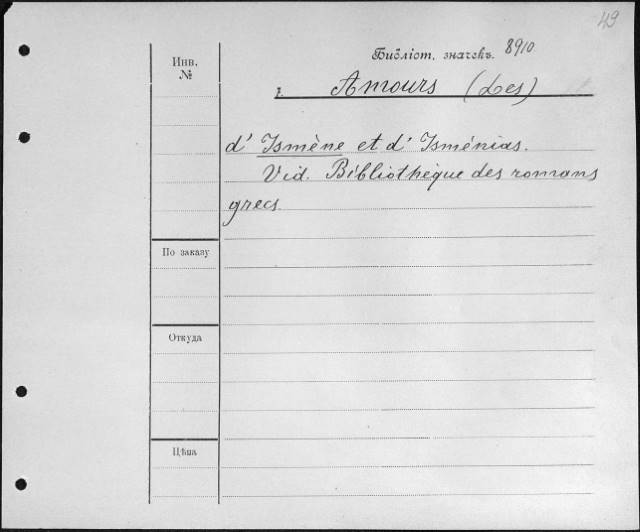 49
Инв.
№
Библіот. значекъ. 8910.
Amours (Les)
d' Ismène et d' Isménias.
Vid. Bibliothèque des romans
grecs.
По заказу
Откуда
Цѣна